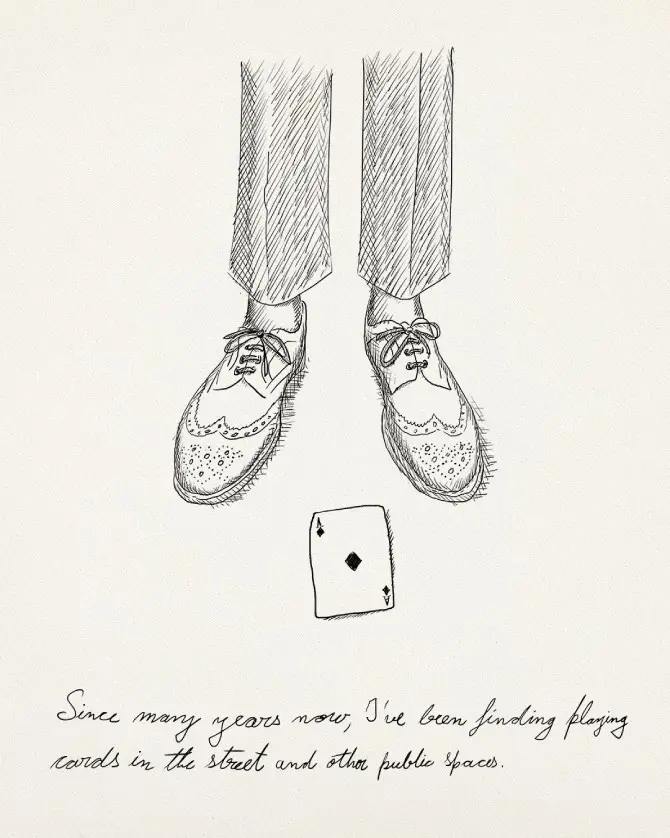 A
A
Since many years now, I've been finding playing
cards in the street and other public spaces.